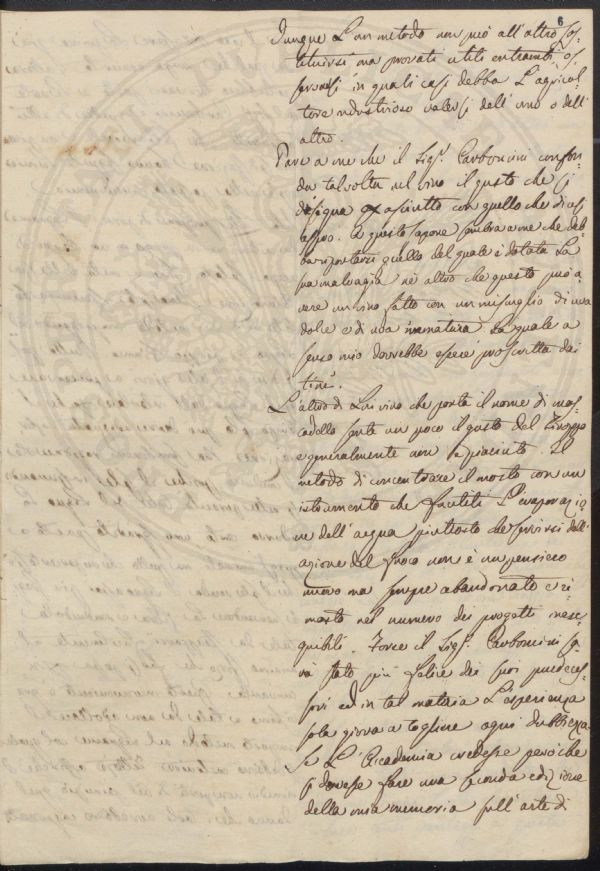 6
Dunque L'un metodo non può all'altro sos-
tituirsi ma provati utili entrambi, os
servasi in quali casi debba L'agricol-
tore industrioso valersi dell'uno o dell'
altro.
Pare a me che il Sig.r Carboncini confon-
da talvolta nel vino il gusto che si
designa asciutto con quello che dicesi
aspro. A questo sapore sembra a me che deb-
ba riportarsi quello del quale è dotata La
sua malvagia nè altro che questo può a
vere un vino fatto con un miscuglio di uva
dolce e di uva immatura La quale a
senso mio dovrebbe essere proscritta dai
tini.
L'altro di Lui vino che porta il nome di mos-
cadello sente un poco il gusto del
e generalmente non è piaciuto. Il
metodo di concentrare il mosto con un
istrumento che faciliti L'evaporazio
ne dell'acqua piuttosto che servirsi dell'
azione del fuoco non è un pensiero
nuovo ma sempre abbandonato e ri-
masto nel numero dei progetti inese-
quibili. Forse il Sig.r Carboncini sa-
rà stato più felice dei suoi predeces-
sori ed in tal materia L'esperienza
sola giova a togliere ogni dubbiezza
Se L'Accademia credesse però che
si dovesse fare una seconda edizione
della mia memoria sull'arte di